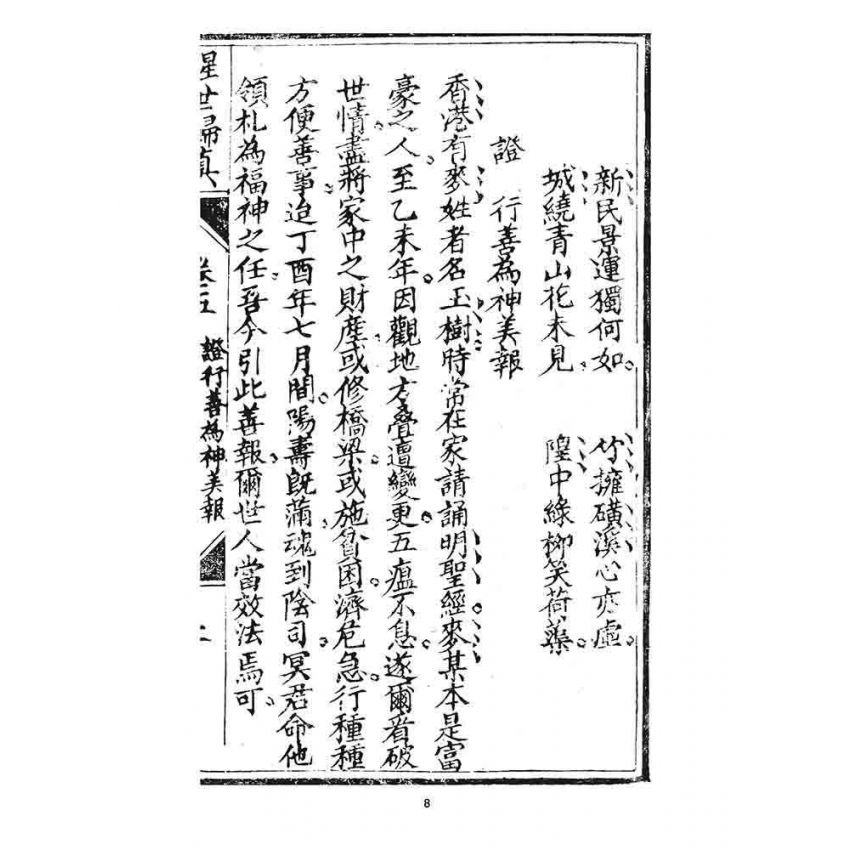 新民景運獨何如　竹擁磺溪心亦虛
城繞青山花未見　隍中綠柳笑荷蕖
證　行善為神美報
香港有麥姓者名玉樹時常在家請誦明聖經麥某本是富
豪之人至乙未年因觀地方叠遭變更五瘟不息遂爾看破
世情盡將家中之財產或修橋梁或施貧困濟危急行種種
方便善事迨丁酉年七月間陽壽既滿魂到陰司冥君命他
領札為福神之任吾今引此善報爾世人當效法焉可
醒世歸真　卷二五　證行善為神美報　二
8